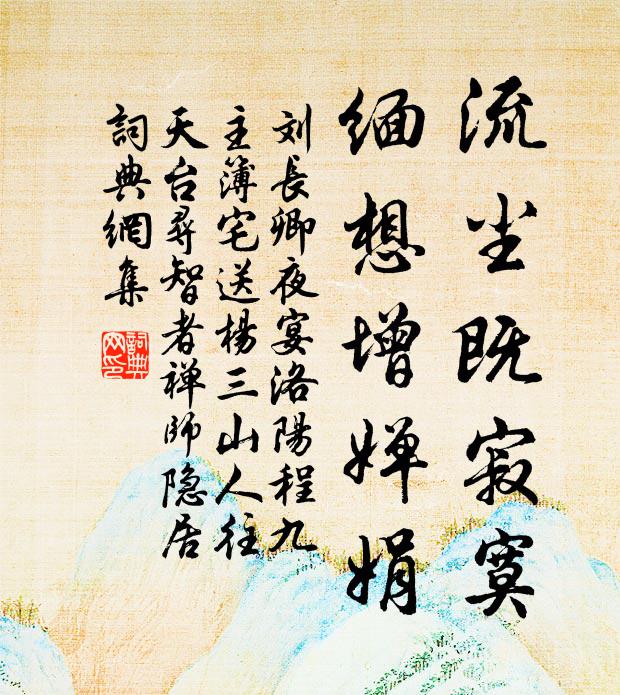 流尘既寂寞
缅想增婵娟
刘長卿夜宴洛陽程九
主簿宅送楊三山人往
天台尋智者禅師隐居
詞典網集
詞典
网印